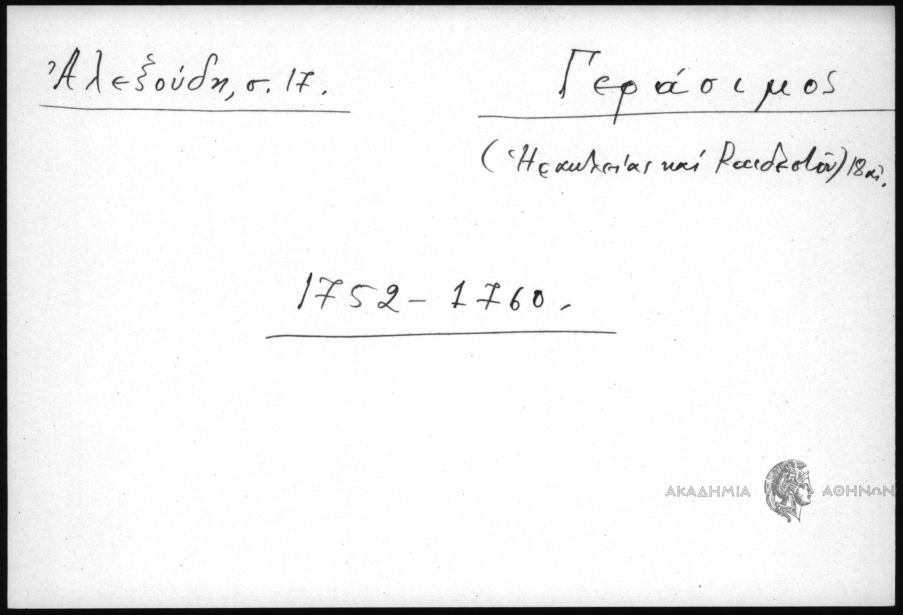 Ἀλεξούδη, σ. 17.
Γεράσιμος
(Ἡρακλείας καί Ραιδεστοῦ) 18 αἰ.
1752 – 1760.
ΑΚΑΔΗΜΙΑ ΑΘΗΝΩΝ